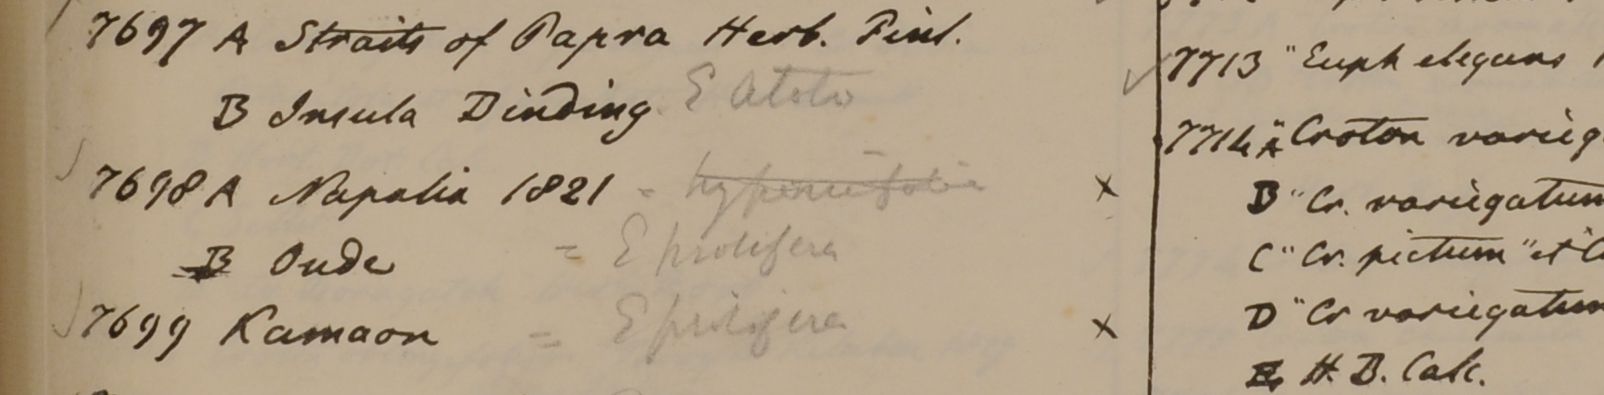 7697 A Straits of Papra Herb. Finl.
B Insula Dinding. E Atoto
7698 A Napalia 1821 - hypericifolia x
B Oude = E prolifera
7699 Kamaon = E prolifera x
7713 "Euph elegans
7714 A "Croton varieg
B "Cr. variegatum
C "Cr. pictum" et C
D "Cr variegatum
E H. B. Calc.